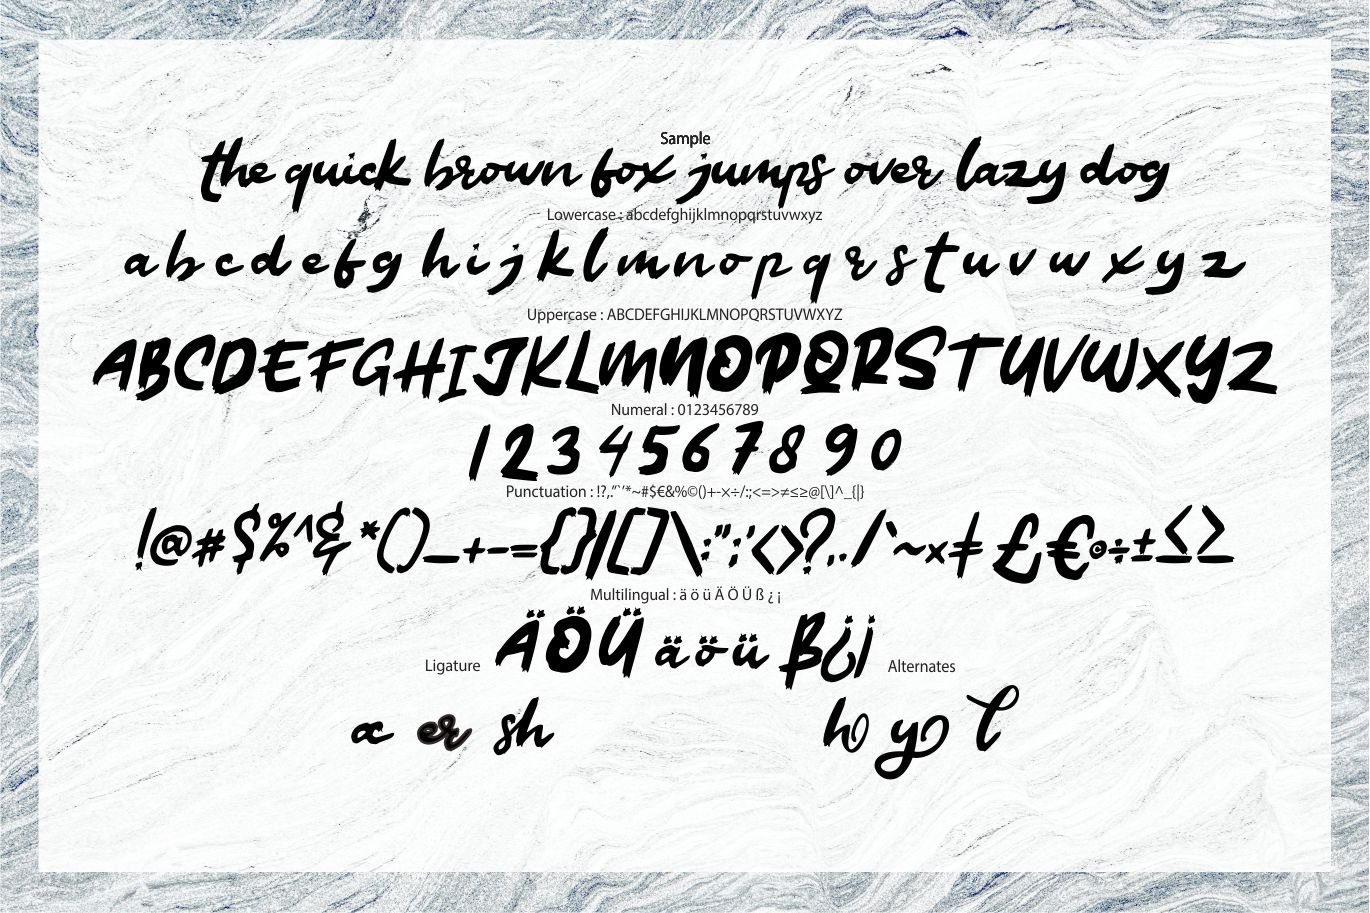 Sample
the quick brown fox jumps over lazy dog
Lowercase : abcdefghijklmnopqrstuvwxyz
a b c d e f g h i j k l m n o p q r s t u v w x y z
Uppercase : ABCDEFGHIJKLMNOPQRSTUVWXYZ
ABCDEFGHIJKLMNOPQRSTUVWXYZ
Numeral : 0123456789
1 2 3 4 5 6 7 8 9 0
Punctuation : !?,.”`‘’*~#$€&%©()+-×÷/:;<=>≠≤≥@[\]^_{|}
!@#$%^&*()_+-={}|[]\:";'<>?,./`~×≠£€©÷±≤≥
Multilingual : ä ö ü Ä Ö Ü ß ¿ ¡
ÄÖÜ äöü ß¿¡
Ligature
Alternates
er sh
h y l